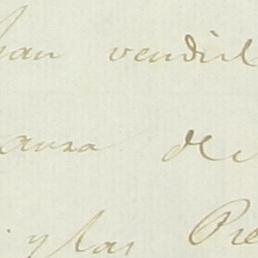 han vendid
ausa de
y las Pre